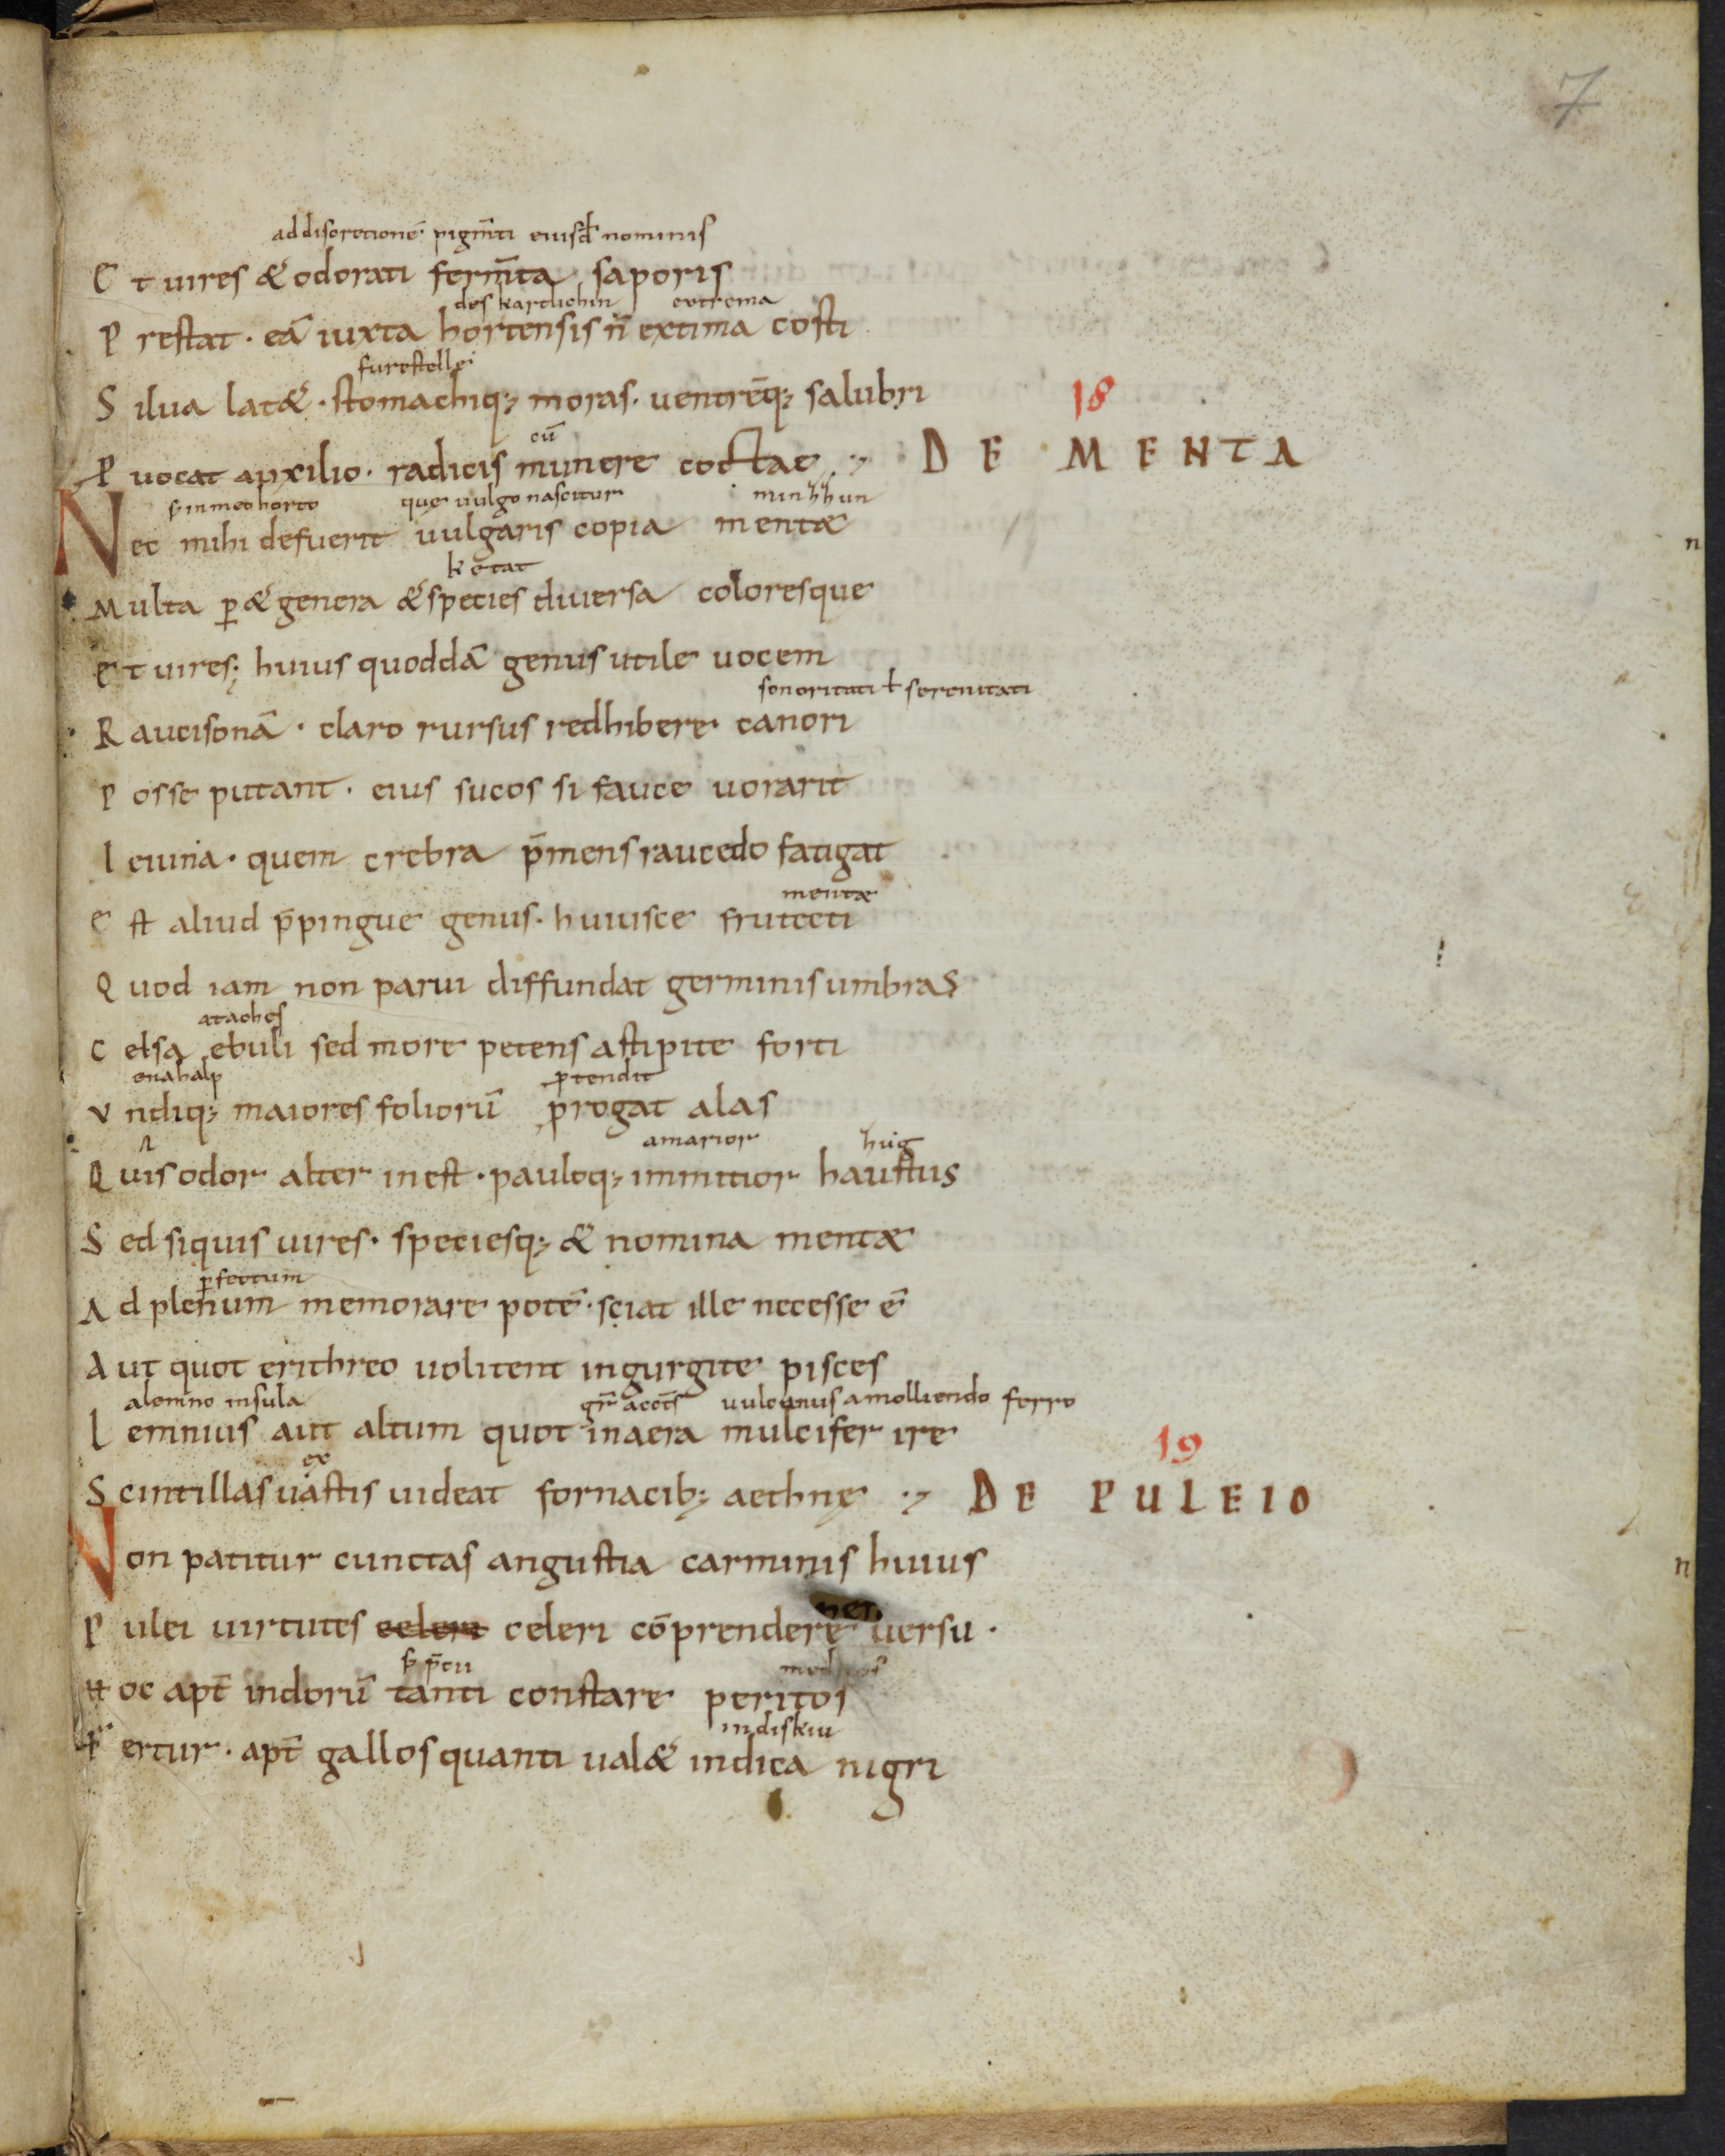 7
ad discretionē pigm̄ti eiusdē nominis
Et uires & odorati ferm̄ta saporis
des kartlichin extrema
Prestat · eā iuxta hortensis n̄ extima costi
furostellet
Silua lat& · stomachiq; moras · uentrēq; salubri
18
cū
Puocat auxilio · radicis munere coctae ·, DE MENTA
s in meo horto que uulgo nascitur minhhun
Nec mihi defuerit uulgaris copia mentæ
n
Multa p & genera & species diuersa coloresque
Et uires; huius quoddā genus utile uocem
sonoritati ł serenitati
Raucisonā · claro rursus redhibere canori
Posse putant · eius sucos si fauce uorarit
Ieiuna · quem crebra p̄mens raucedo fatigat
mentæ
Est aliud p̄pingue genus · huiusce frutecti
Quod iam non parui diffundat germinis umbras
ataches
Celsa ebuli sed more petens a stipite forti
enahalp ptendit
Vndiq; maiores foliorū progat alas
amarior hug
Quis odor alter inest · pauloq; inmitior haustus
Sed siquis uires · speciesq; & nomina mentæ
pfectum
Ad plenum memorare potē · sciat ille necesse ē
Aut quot erithreo uolitent in gurgite pisces
alemno insula gr̄ uulcanus a molliendo ferro
Lemnius aut altum quot in aera mulcifer ire
19
ex
Scintillas uastis uideat fornacib; aethnę ·, DE PULEIO
Non patitur cunctas angustia carminis huius
n
Pulei uirtutes celeri celeri cōprendere uersu ·
medicos
Hoc apt̄ indorū tanti constare peritos
indiskiu
Fertur · apt̄ gallos quanti ual& indica nigri